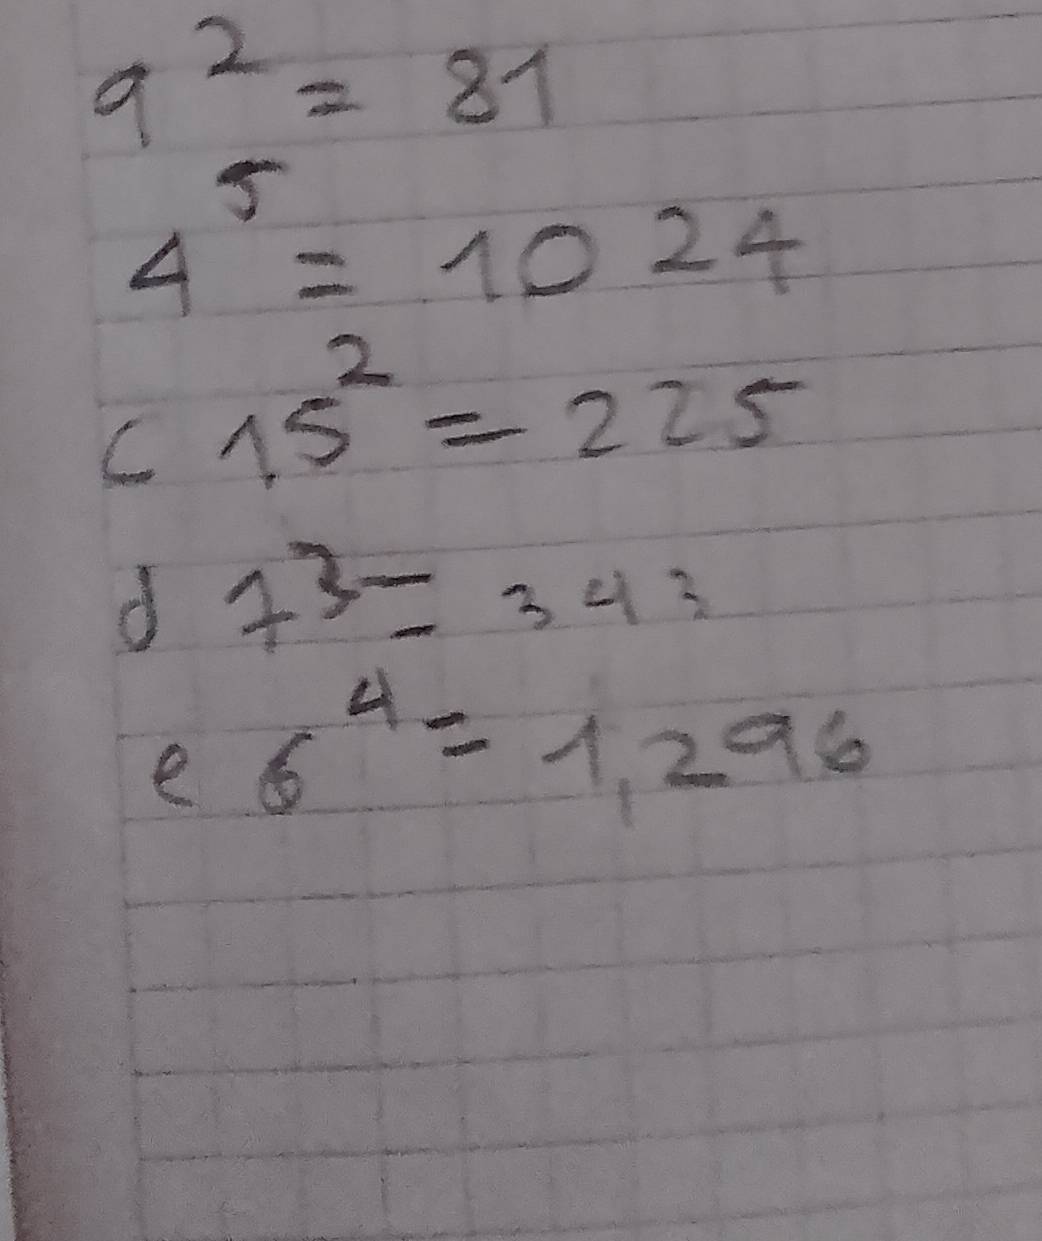 9² = 81
4⁵ = 1024
c 15² = 225
d 7³ = 343
e 6⁴ = 1,296